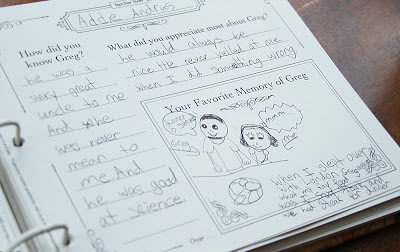 Adde Andrus
How did you
know Greg?
he was a
very great
uncle to me
And he
was never
mean to
me. And
he was good
at science.
What did you appreciate most about Greg?
he would always be
nice He never yelled at me
when I did something wrong
Your Favorite Memory of Greg
Greg
mmm
me
when I slept over
with London Greg
what my
was
we had steak for dinner
Over